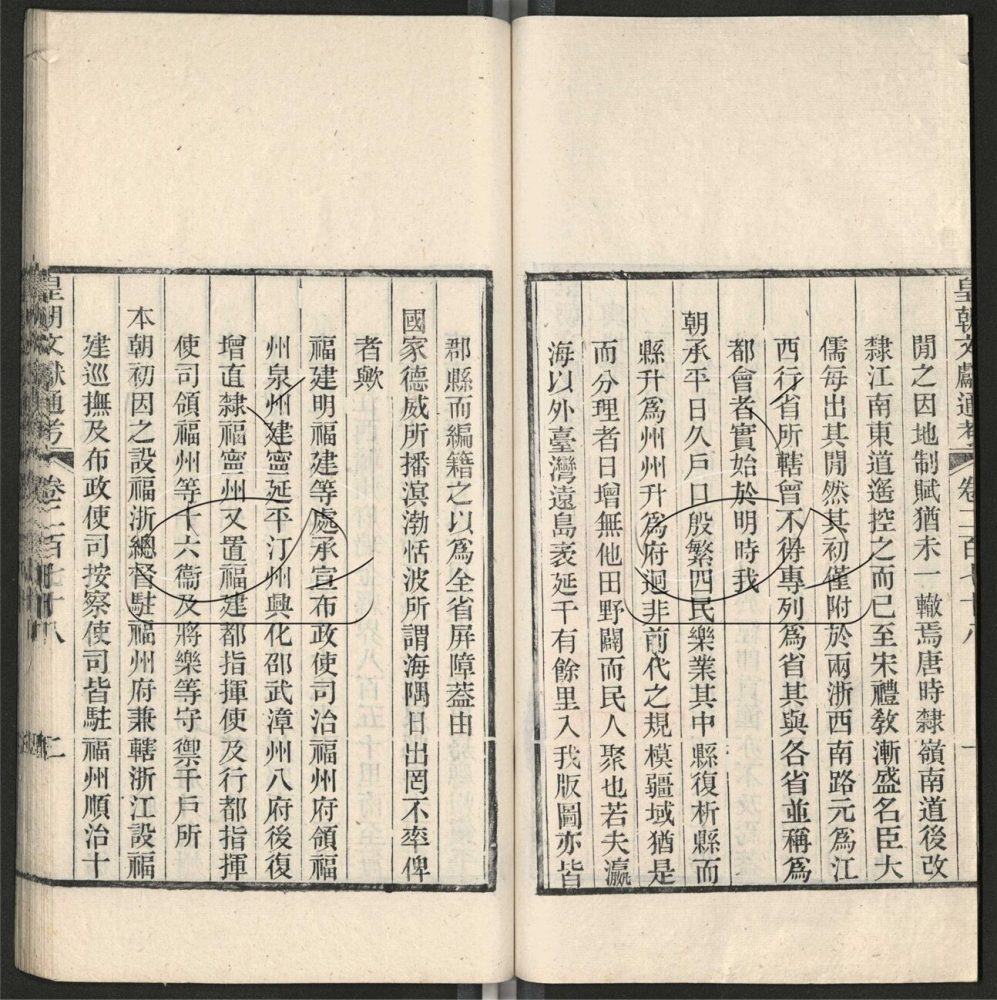 皇朝文獻通考 卷二百七十八 一
閒之因地制賦猶未一轍焉唐時隸嶺南道後改
隸江南東道遙控之而已至宋禮敎漸盛名臣大
儒每出其閒然其初僅附於兩浙西南路元爲江
西行省所轄曾不得專列爲省其與各省並稱爲
都會者實始於明時我
朝承平日久戶口殷繁四民樂業其中縣復析縣而
縣升爲州州升爲府迥非前代之規模疆域猶是
而分理者日增無他田野闢而民人聚也若夫瀛
海以外臺灣遠島袤延千有餘里入我版圖亦皆
郡縣而編籍之以爲全省屏障葢由
國家德威所播溟渤恬波所謂海隅日出罔不率俾
者歟
福建明福建等處承宣布政使司治福州府領福
州泉州建寧延平汀州興化邵武漳州八府後復
增直隸福寧州又置福建都指揮使及行都指揮
使司領福州等十六衞及將樂等守禦千戶所
本朝初因之設福浙總督駐福州府兼轄浙江設福
建巡撫及布政使司按察使司皆駐福州順治十
皇朝文獻通考 卷二百七十八 二